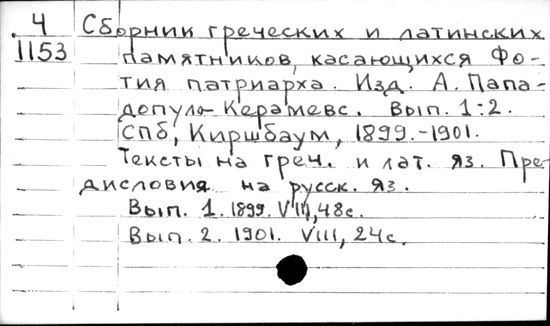 Ч Сборник греческих и латинских
1153 памятников, касающихся Фо-
тия патриарха. Изд. А. Папа-
допуло-Керамевс. Вып. 1-2.
СПб, Киршбаум, 1899.-1901.
Тексты на греч. и лат. яз. Пре-
дисловия на русск. яз.
Вып. 1. 1899. VIII, 48с.
Вып. 2. 1901. VIII, 24с.